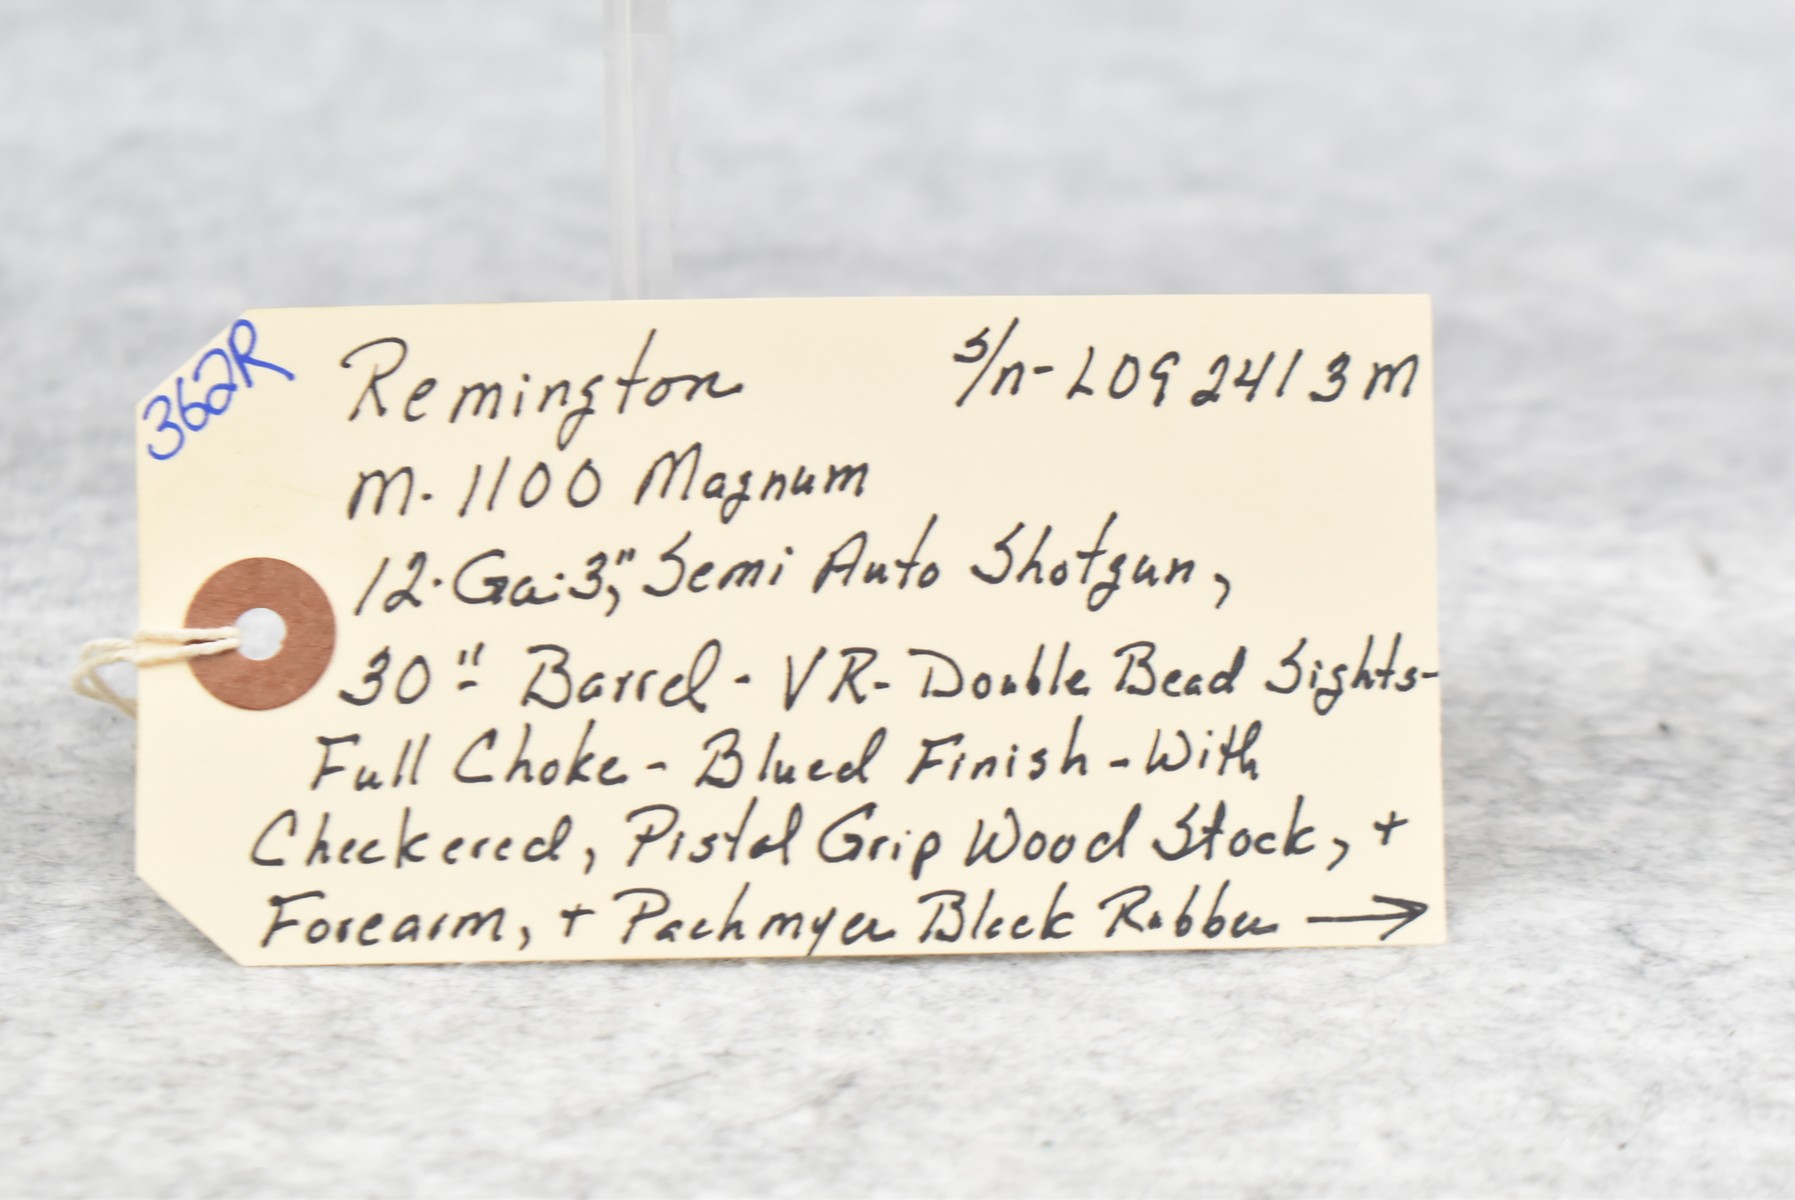 362R
Remington s/n- L092413M
M. 1100 Magnum
12. Ga. 3", Semi Auto Shotgun,
30" Barrel - VR - Double Bead Sights -
Full Choke - Blued Finish - With
Checkered, Pistol Grip Wood Stock, +
Forearm, + Pachmyer Black Rubber →